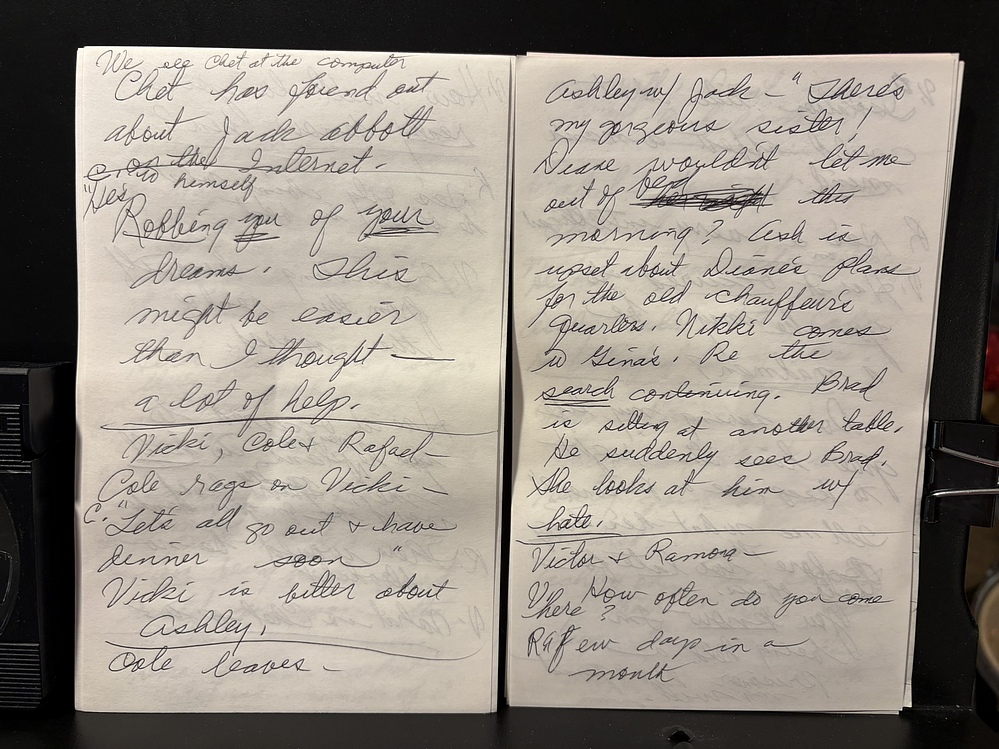 We see Chet at the computer
Chet has found out
about Jack abbott
on the Internet.
C. to himself
"He's
Robbing you of your
dreams. This
might be easier
than I thought —
a lot of help.
Vicki, Cole + Rafael —
Cole rags on Vicki —
C. "Let's all go out + have
dinner soon"
Vicki is bitter about
Ashley.
Cole leaves —
Ashley w/ Jack — "There's
my gorgeous sister!
Diane wouldn't let me
out of bed this
morning? Ash is
upset about Diane's plans
for the old chauffeur's
quarters. Nikki comes
to Gina's. Re the
search continuing. Brad
is sitting at another table.
He suddenly sees Brad.
She looks at him w/
hate.
Victor + Ramona —
V. How often do you come
here?
R. A few days in a
month